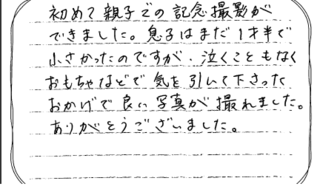 初めて親子での記念撮影が
できました。息子はまだ1才半で
小さかったのですが、泣くこともなく
おもちゃなどで気を引いて下さった
おかげで良い写真が撮れました。
ありがとうございました。